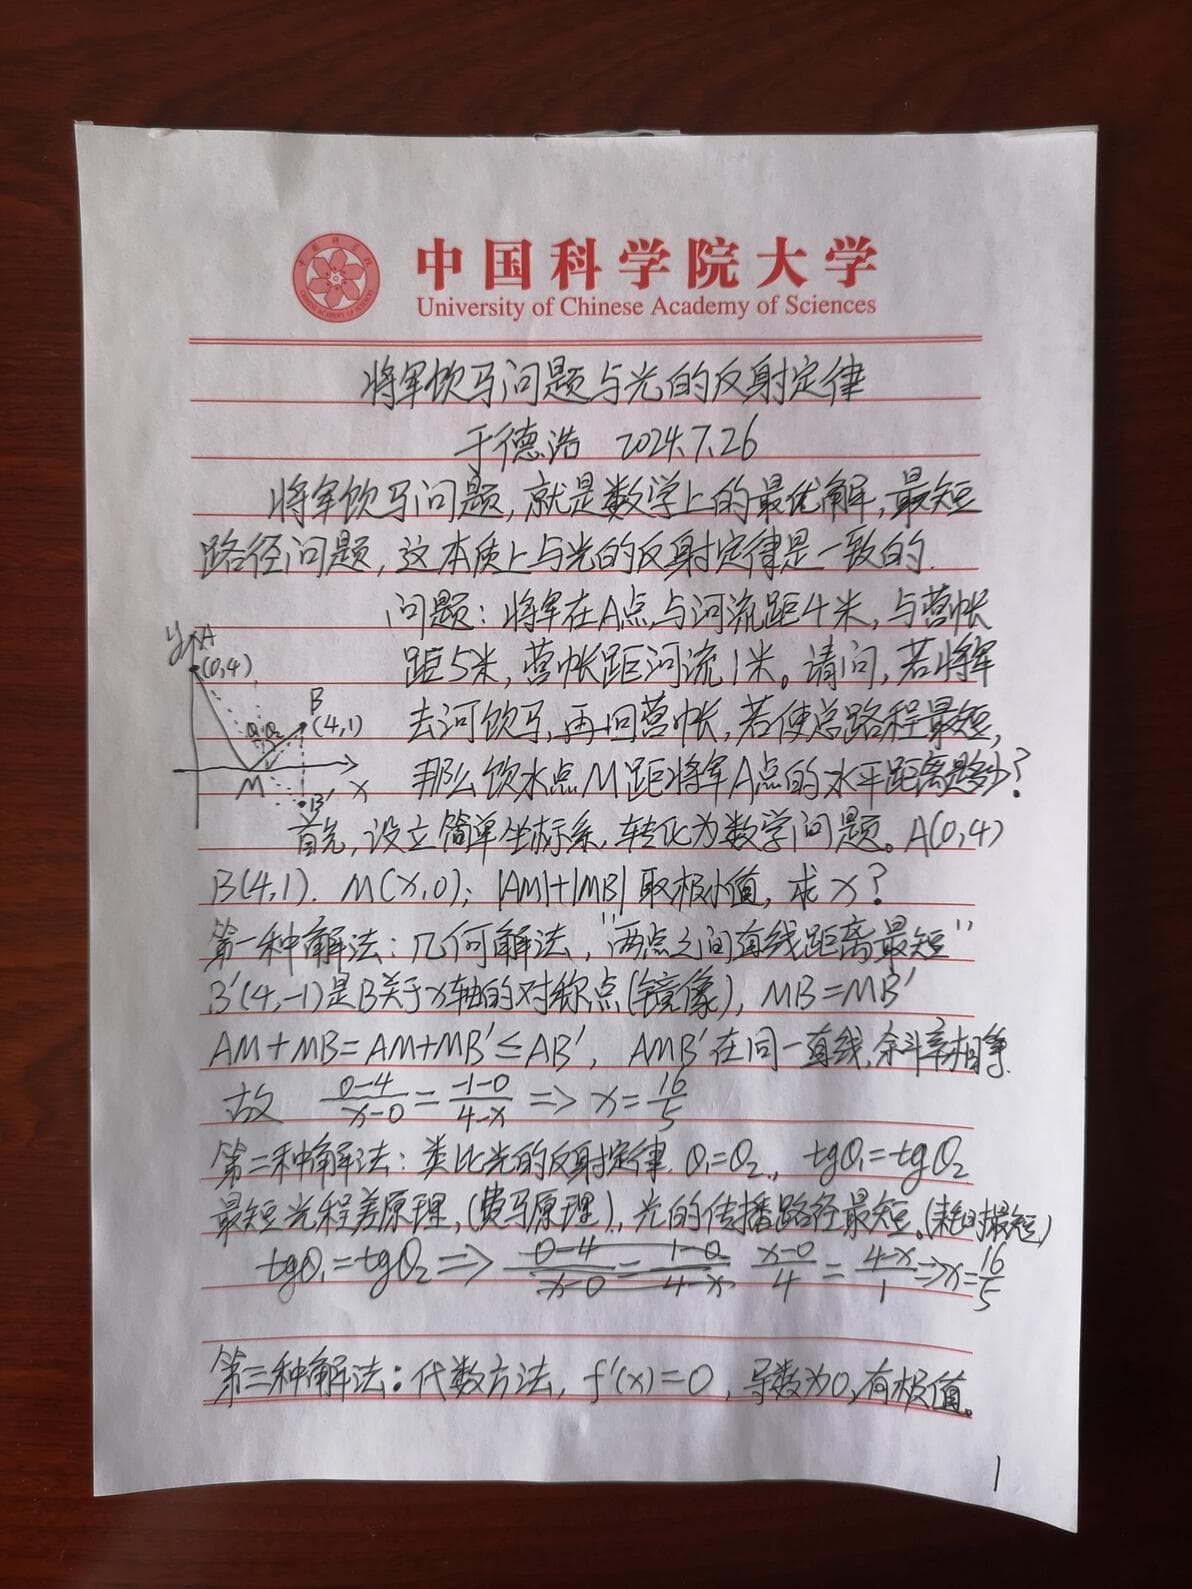 中国科学院大学
University of Chinese Academy of Sciences
将军饮马问题与光的反射定律
于德浩 2024.7.26
将军饮马问题,就是数学上的最优解,最短
路径问题,这本质上与光的反射定律是一致的.
问题:将军在A点,与河流距4米,与营帐
距5米,营帐距河流1米。请问,若将军
去河饮马,再回营帐,若使总路程最短,
那么饮水点M距将军A点的水平距离是多少?
y A
(0,4)
B
(4,1)
θ₁ θ₂
M x
B'
首先,设立简单坐标系,转化为数学问题。A(0,4)
B(4,1). M(x,0); |AM|+|MB| 取极小值,求x?
第一种解法:几何解法,"两点之间直线距离最短"
B'(4,-1)是B关于x轴的对称点(镜像), MB=MB'
AM+MB=AM+MB'≤AB', AMB'在同一直线,斜率相等.
故 (0-4)/(x-0) = (-1-0)/(4-x) => x=16/5
第二种解法:类比光的反射定律. θ₁=θ₂, tgθ₁=tgθ₂
最短光程差原理,(费马原理),光的传播路径最短。(耗时最短)
tgθ₁=tgθ₂ => (0-4)/(x-0) = (1-0)/(4-x) (x-0)/4 = (4-x)/1 => x=16/5
第三种解法:代数方法, f'(x)=0,导数为0,有极值。
1